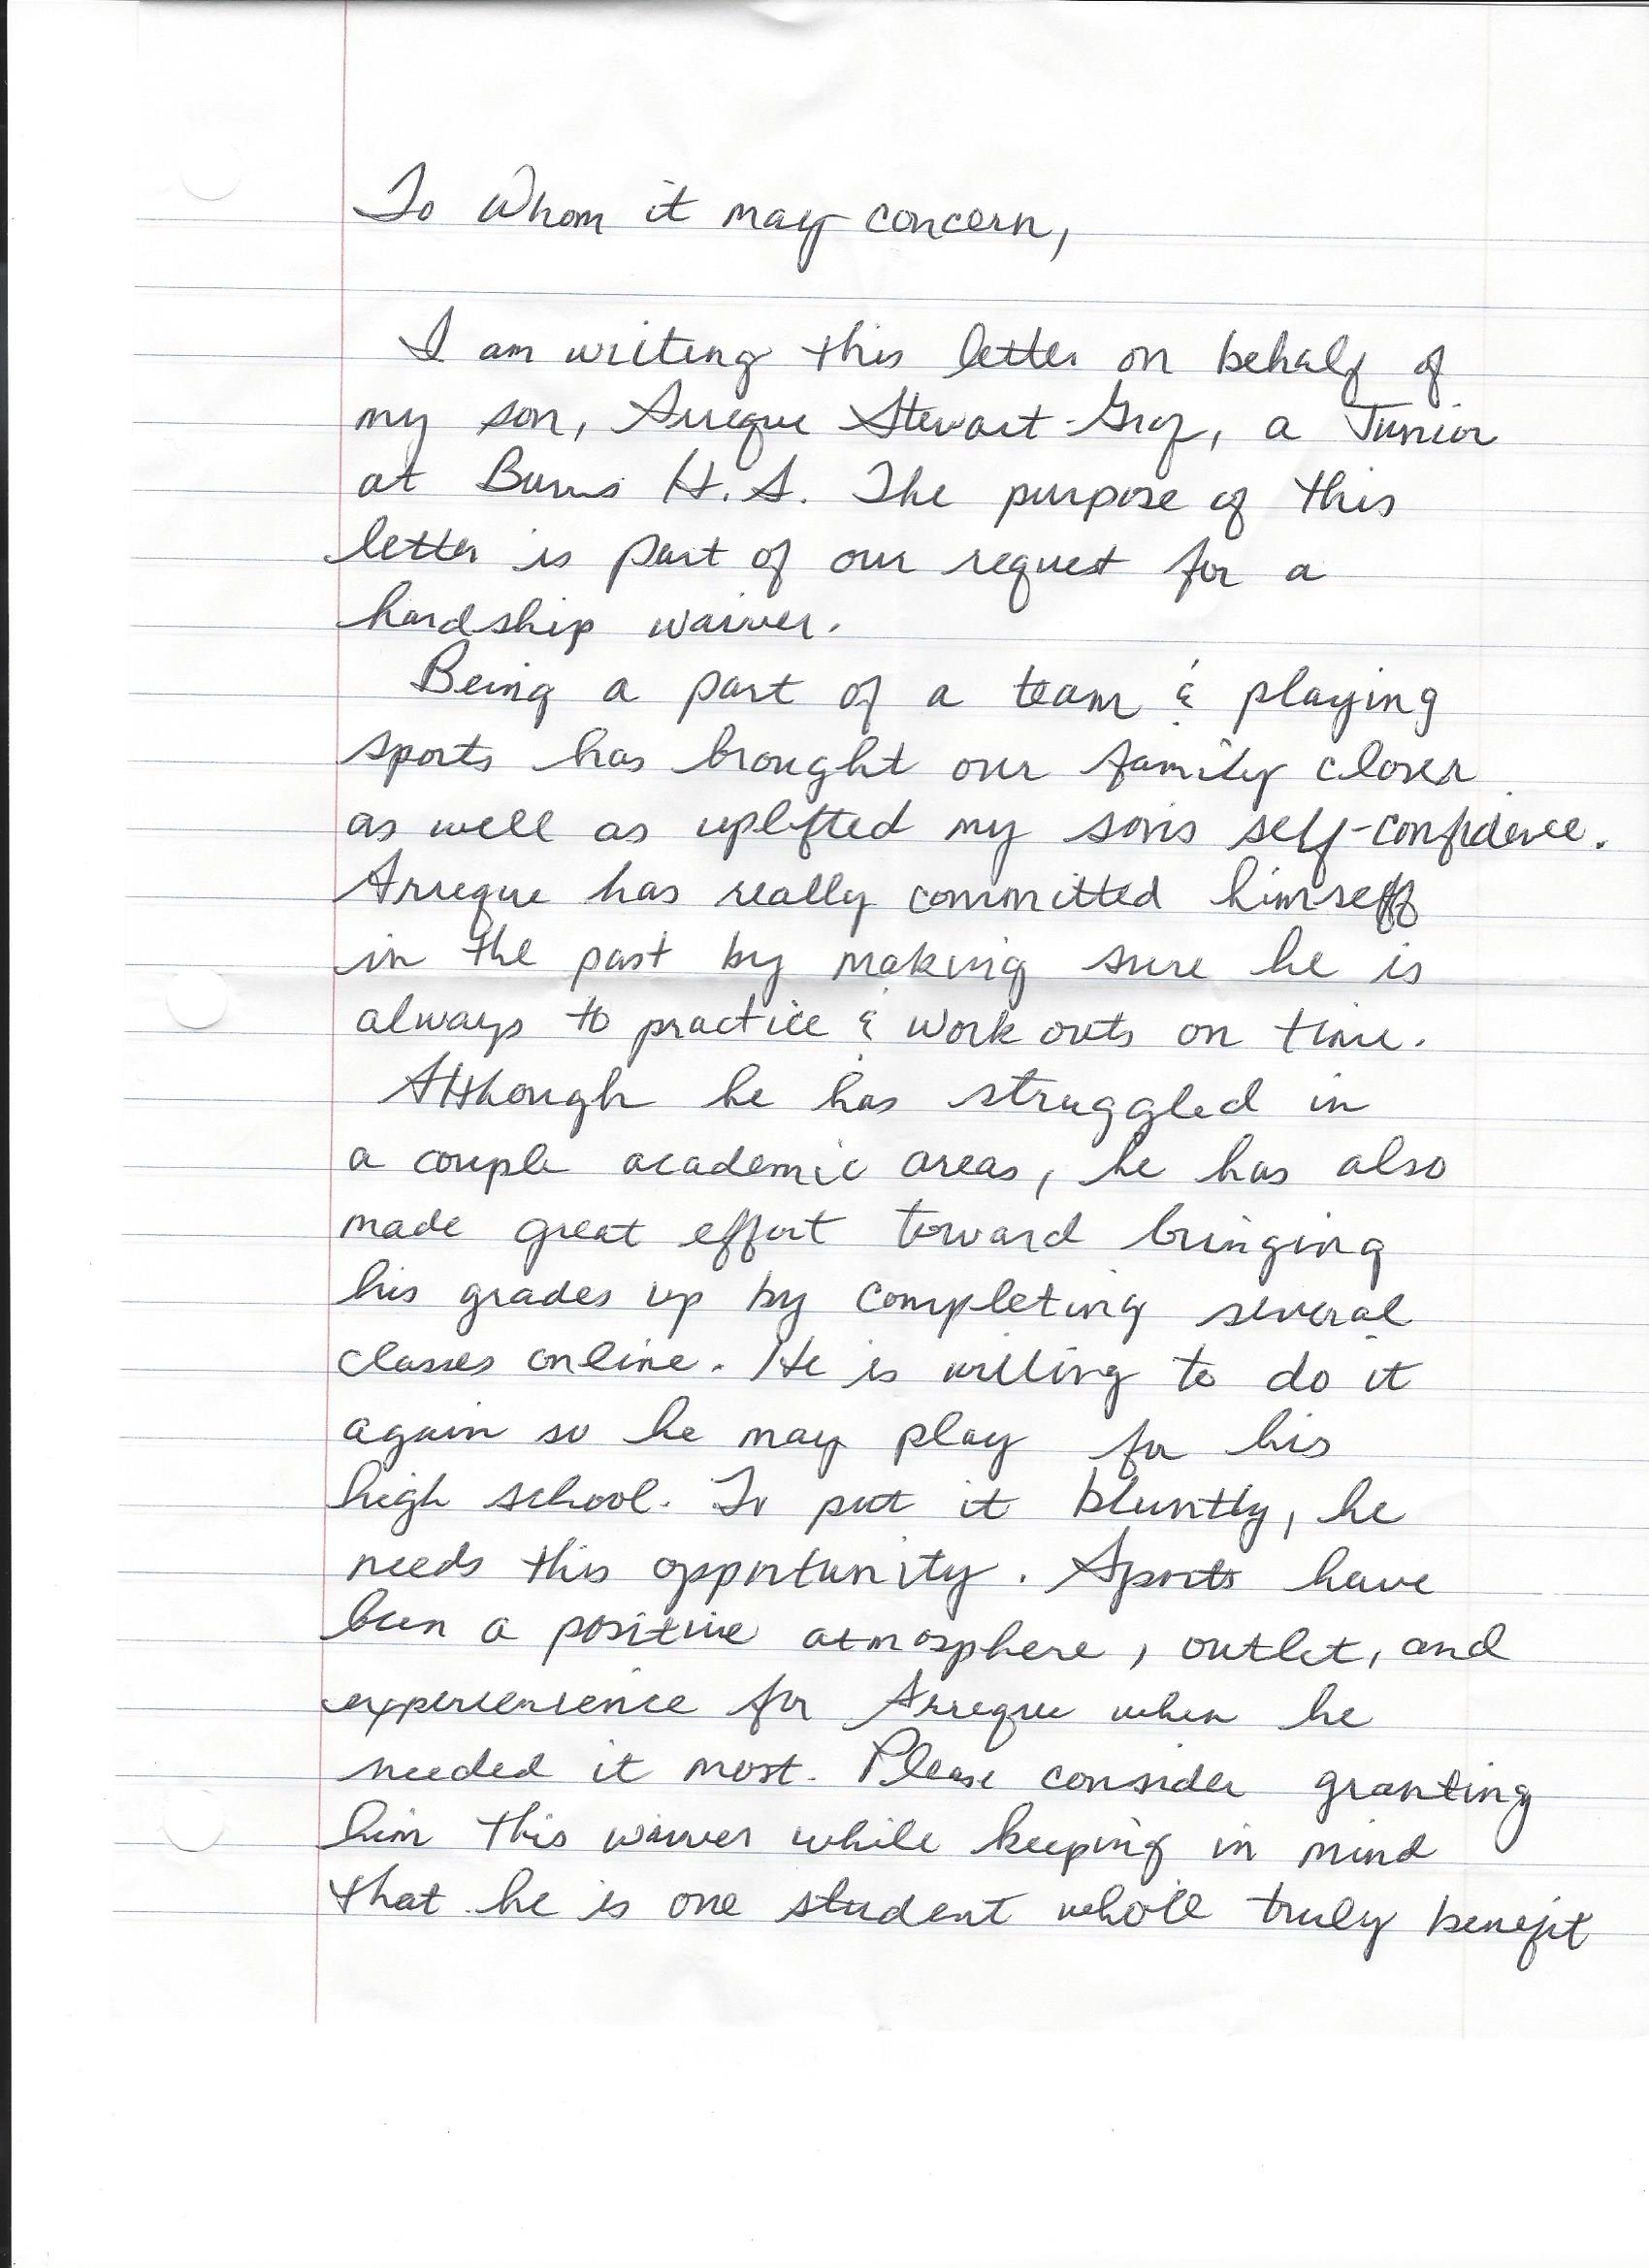 To Whom it may concern,
I am writing this letter on behalf of
my son, Arreque Stewart-, a Junior
at Burns H.S. The purpose of this
letter is part of our request for a
hardship waiver.
Being a part of a team & playing
sports has brought our family closer
as well as uplifted my son's self-confidence.
Arreque has really committed himself
in the past by making sure he is
always to practice & work outs on time.
Although he has struggled in
a couple academic areas, he has also
made great effort toward bringing
his grades up by completing several
classes online. He is willing to do it
again so he may play for his
high school. To put it bluntly, he
needs this opportunity. Sports have
been a positive atmosphere, outlet, and
experienience for Arreque when he
needed it most. Please consider granting
him this waiver while keeping in mind
that he is one student who'll truly benefit